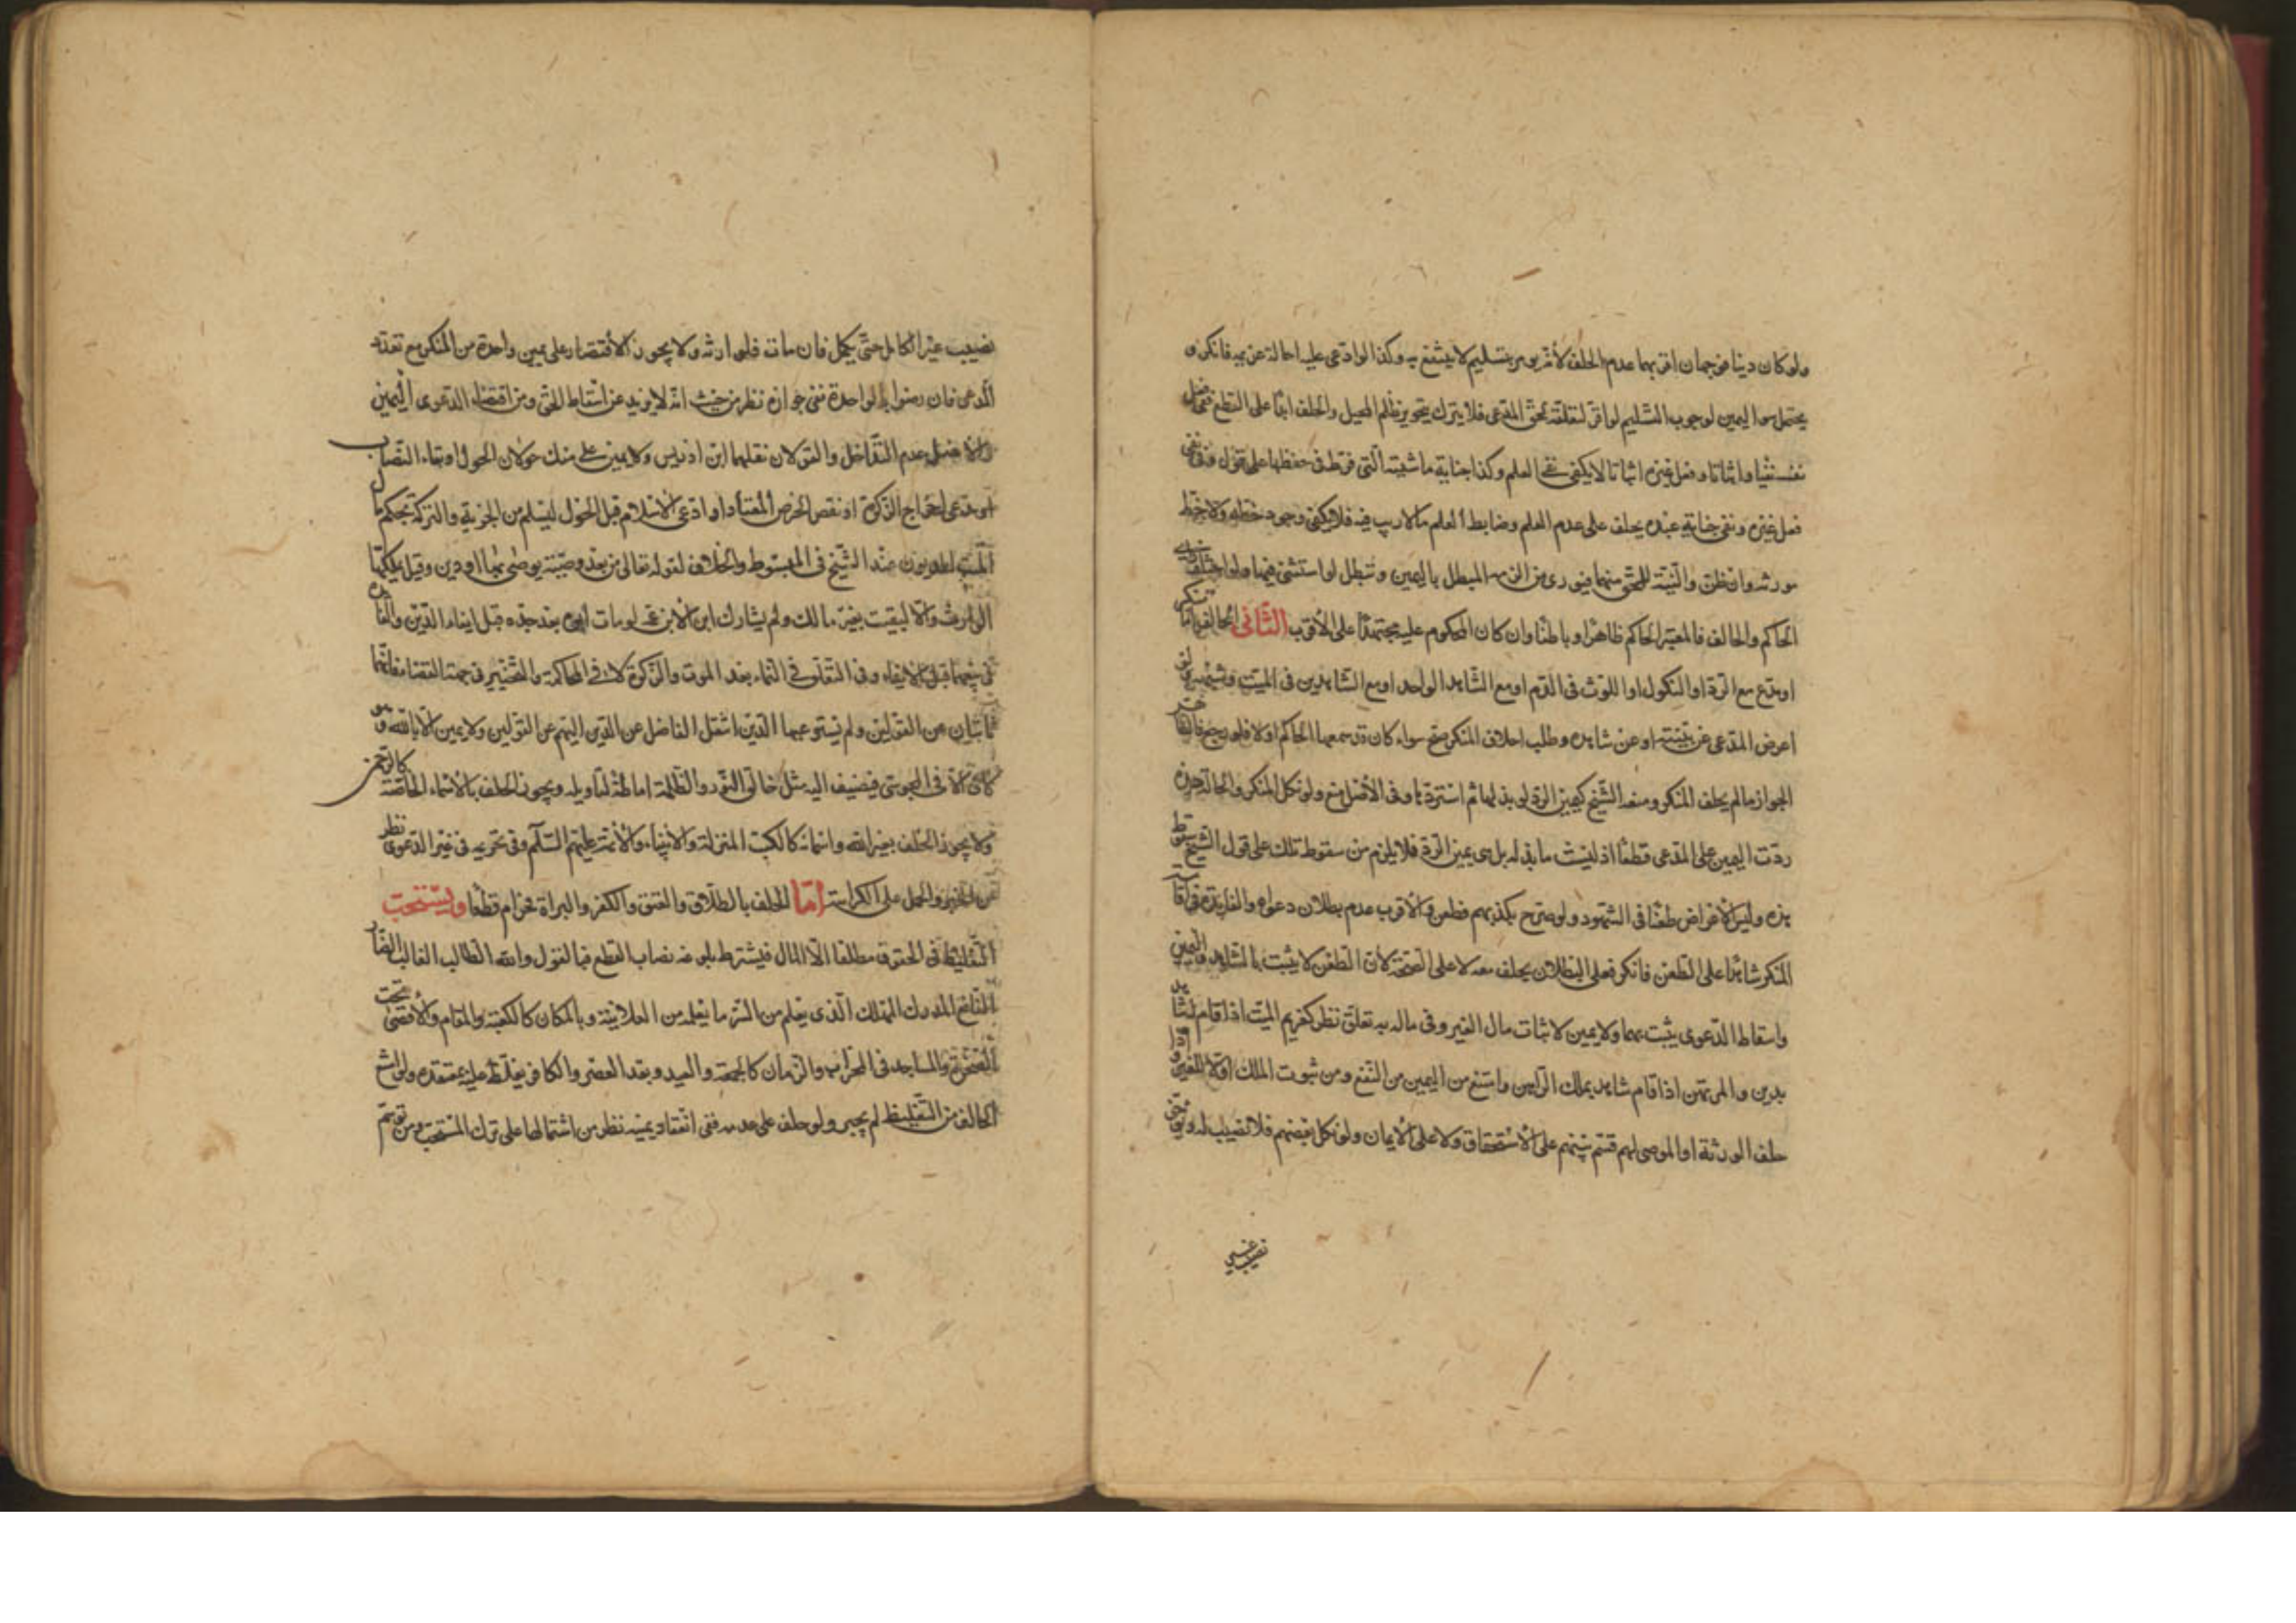 ولو كان دينا فوجهان اقربهما عدم الحلف لأنه يؤمر بتسليم لا ينتفع به وكذا لو ادعى عليه احالة عن يمينه فانكر و
يحتمل سوا اليمين لوجوب التسليم لو اقر لتعلقه بحق المدعى فلا يترك بتجويز ظلم المحيل والحلف ابدًا على القطع فى فعل
نفسه نفيا واثباتا وفعل غيره اثباتا لا يكفى نفى العلم وكذا جناية ماشيته الّتى فرّط فى حفظها على قول وفى نفى
فعل غيره ونفى جناية عبده يحلف على عدم العلم وضابط العلم ما لا ريب فيه فلا يكفى وجود خطه ولا خط
مورثه وان ظن والنيّة للمحق منهما فيورى من الزمه المبطل باليمين وتبطل لو استثنى فيها ولو اختلف راى
الحاكم والحالف فالمعتبر الحاكم ظاهرًا وباطنًا وان كان المحكوم عليه مجتهدًا على الأقرب الثّانى الحالف اما منكر
او مدّع مع الرد او النكول او اللوث فى الدّم او مع الشّاهد الواحد او مع الشّاهدين فى الميت وشبهه ولو
اعرض المدعى عن بيّنته او عن شاهده وطلب احلاف المنكر صح سواء كان قد سمعهما الحاكم او لا فلو رجع فالاقرب
الجواز ما لم يحلف المنكر ومنعه الشّيخ كيمين الرد لو بذلها ثم استردها وفى الأصل منع ولو نكل المنكر والحالة هذه
ردّت اليمين على المدعى قطعًا اذ ليست ما بذله بل هى يمين الرد فلا يلزم من سقوط تلك على قول الشّيخ سقوط
هذه وليس الأعراض طعنًا فى الشهود ولو صرّح بكذبهم فطعن والأقرب عدم بطلان دعواه والفايدة فى اقامة
المنكر شاهدًا على الطعن فانكر فعلى البطلان يحلف معه لا على الصحة لأن الطعن لا يثبت بالشاهد واليمين
واسقاط الدّعوى يثبت بهما ولا يمين لاثبات مال الغير وفى ماله به تعلّق نظر كغريم الميّت اذا قام له شاهد
بدين والمرتهن اذا قام شاهد بملك الرّاهن وامتنع من اليمين من النّفع ومن ثبوت الملك اولا للغير واذا
حلف الورثة او الموصى لهم قسّم بينهم على الأستحقاق ولا على الأيمان ولو نكل بعضهم فلا نصيب له ويؤخر
نصيب غير
نصيب غير الكامل حتّى يكمل فان مات فلوارثه ولا يجوز الأقتصار على يمين واحدة من المنكر مع تعدد
المدعى فان رضوا بالواحدة ففى جوازه نظر من حيث انه لا يزيد عن اسقاط الحق ومن اقتضاء الدعوى اليمين
والأصل عدم التّداخل والقولان نقلهما ابن ادريس ولا يمين على منكر حولان الحول او بقاء النّصاب
او مدعى اخراج الزكوة او نقص الخرص المعتاد او ادعى الأسلام قبل الحول ليسلم من الجزية والتركة بحكم مال
الميّت المديون عند الشّيخ فى المبسوط والخلاف لقوله تعالى من بعد وصيّة يوصى بها او دين وقيل يملكها
الوارث والا لبقيت بغير مالك ولم يشارك ابن الأبن عمه لو مات ابوه بعد جدّه قبل ايفاء الدّين والفائدة
فى بيعها قبل الأيفاء وفى التعلّق فى النماء بعد الموت والزّكوة لا فى المحاكمة والتّخيير فى جهة القضاء فانهما
ثابتان عن القولين ولم يستوعبها الدّين انتقل الفاضل عن الدّين اليهم عن القولين ولا يمين الا بالله ولو
كان الا فى المجوسى فيضيف اليه مثل خالق النّور والظّلمة اماطة لتأويله ويجوز الحلف بالأسماء الخاصّة كالرحمن
ولا يجوز الحلف بغير الله واسمائه كالكتب المنزلة والأنبياء والأئمة عليهم السلام وفى تحريمه فى غير الدّعوى نظر
من الخبر والحمل على الكراهة امّا الحلف بالطّلاق والعتق والكفر والبراة فحرام قطعًا ويستحبّ
التّغليظ فى الحقوق مطلقًا الّا المال فيشترط بلوغه نصاب القطع فبالقول والله الطّالب الغالب الضّار
النّافع المدرك المهلك الّذى يعلم من السّر ما يعلمه من العلانية وبالمكان كالكعبة والمقام والأقصى تحت
الصّخرة والمساجد فى المحراب والزّمان كالجمعة والعيد وبعد العصر والكافر يغلّظ عليه بمعتقده ولو امتنع
الحالف من التّغليظ لم يجبر ولو حلف على عدمه ففى انعقاد يمينه نظر من اشتمالها على ترك المستحب ومن توهّم